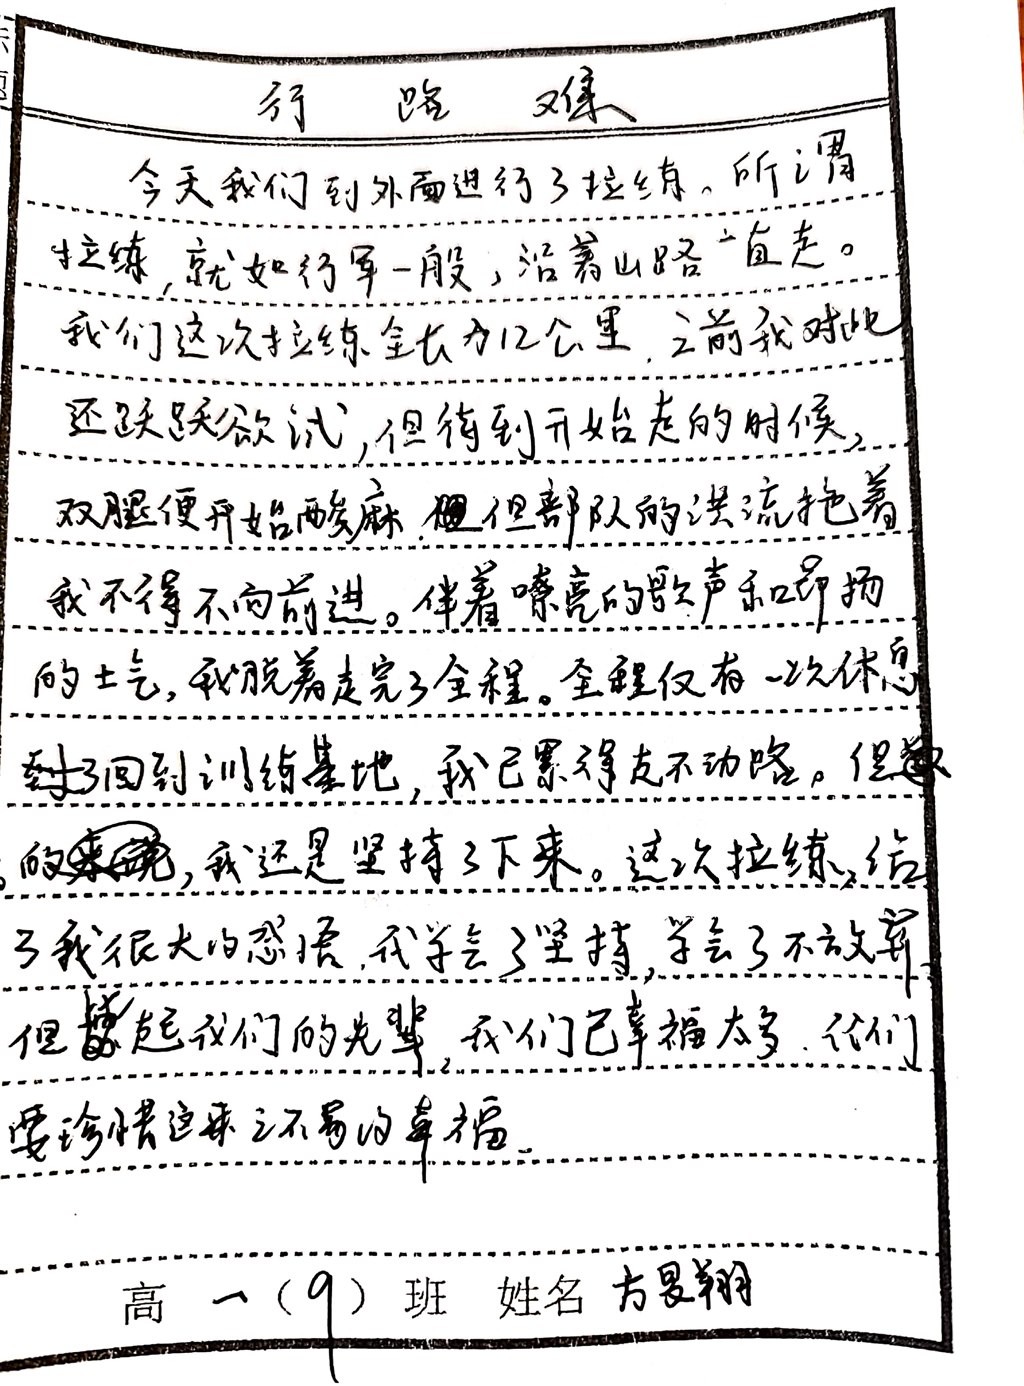 行路难
今天我们到外面进行了拉练。所谓
拉练,就如行军一般,沿着山路一直走。
我们这次拉练全长为12公里,之前我对此
还跃跃欲试,但待到开始走的时候,
双腿便开始酸麻,但部队的洪流拖着
我不得不向前进。伴着嘹亮的歌声和昂扬
的士气,我脱着走完了全程。全程仅有一次休息
回到训练基地,我已累得走不动路。但
的,我还是坚持了下来。这次拉练,给
了我很大的感悟,我学会了坚持,学会了不放弃,
但 起我们的先辈,我们已幸福太多,我们
要珍惜这来之不易的幸福。
高一(9)班 姓名 方昱翔